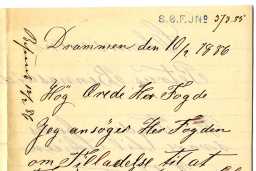 S.B.F. JNo 373.85
Drammen den 10/2 1886
Høg Ørede Her Fogde
Jeg ansøger Her Fogden
om Tilladelse til at